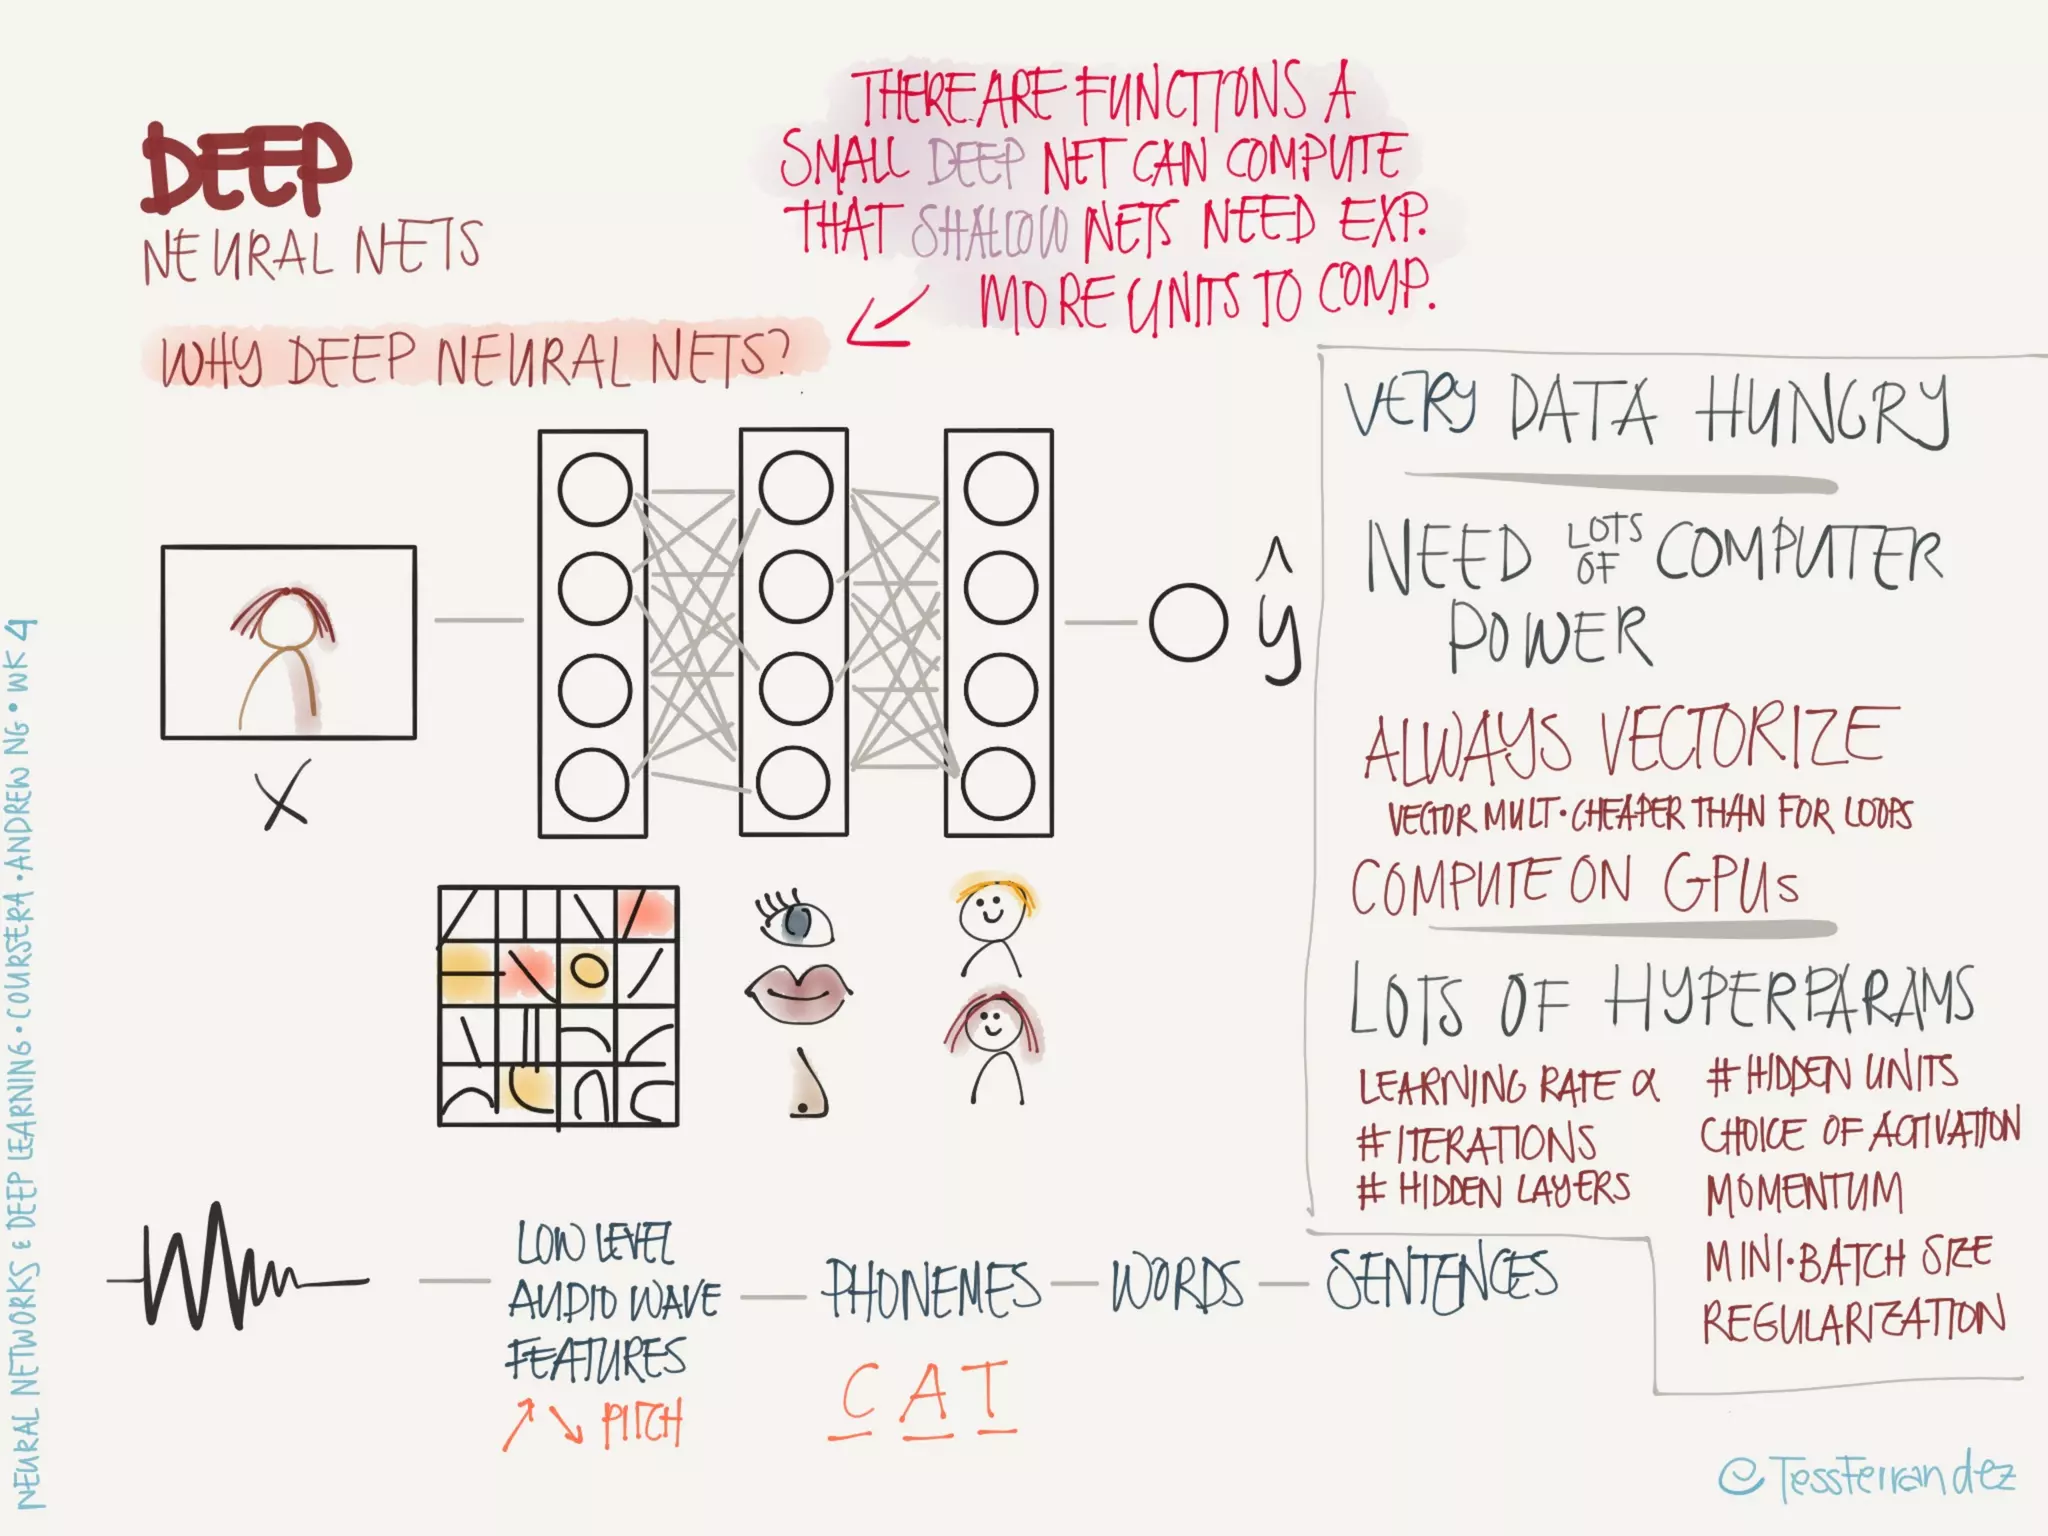 DEEP
NEURAL NETS
THERE ARE FUNCTIONS A
SMALL DEEP NET CAN COMPUTE
THAT SHALLOW NETS NEED EXP.
MORE UNITS TO COMP.
WHY DEEP NEURAL NETS?
X
ŷ
VERY DATA HUNGRY
NEED LOTS OF COMPUTER
POWER
ALWAYS VECTORIZE
VECTOR MULT. CHEAPER THAN FOR LOOPS
COMPUTE ON GPUs
LOTS OF HYPERPARAMS
LEARNING RATE α
# ITERATIONS
# HIDDEN LAYERS
# HIDDEN UNITS
CHOICE OF ACTIVATION
MOMENTUM
MINI-BATCH SIZE
REGULARIZATION
LOW LEVEL
AUDIO WAVE
FEATURES
↗↘ PITCH
PHONEMES — WORDS — SENTENCES
C A T
NEURAL NETWORKS & DEEP LEARNING • COURSERA • ANDREW NG • WK 4
@TessFerrandez